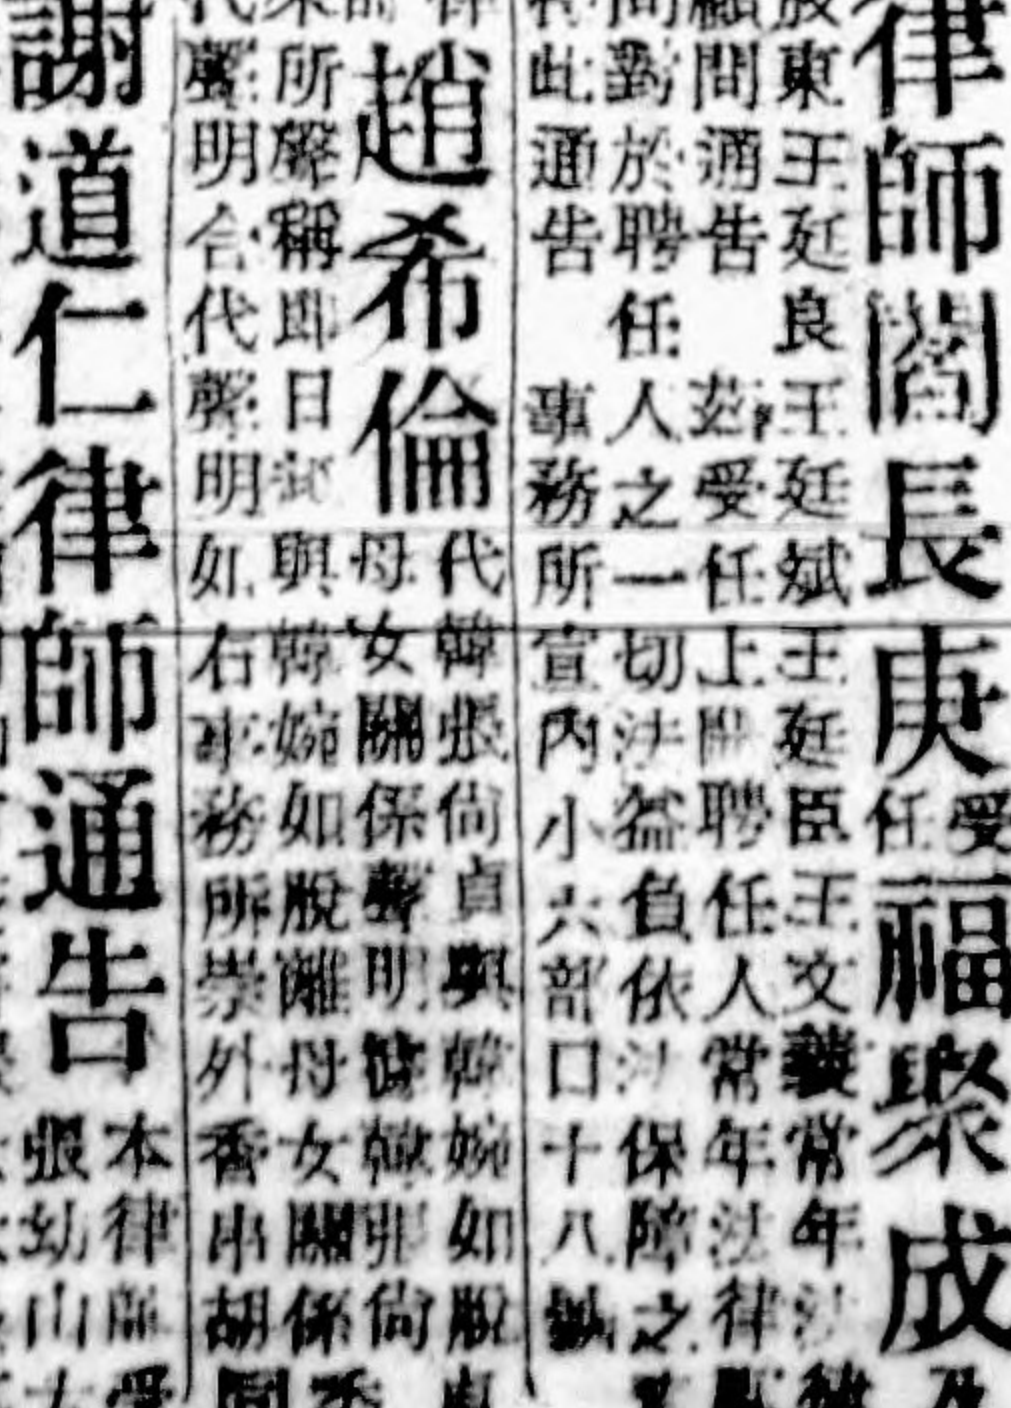 律師閻長庚受任福聚成
東王廷良王廷斌王廷臣王文 常年法
顧問通告 茲受任上開聘任人常年法律
問對於聘任人之一切法益負依法保障之
此通告 事務所宣內小六部口十八號
趙希倫
代韓張尙貞與韓婉如脫
母女關係聲明 韓 尙
所聲稱即日起與韓婉如脫離母女關係
聲明合代聲明如右事務所崇外香串胡
謝道仁律師通告
本律師受
張幼山